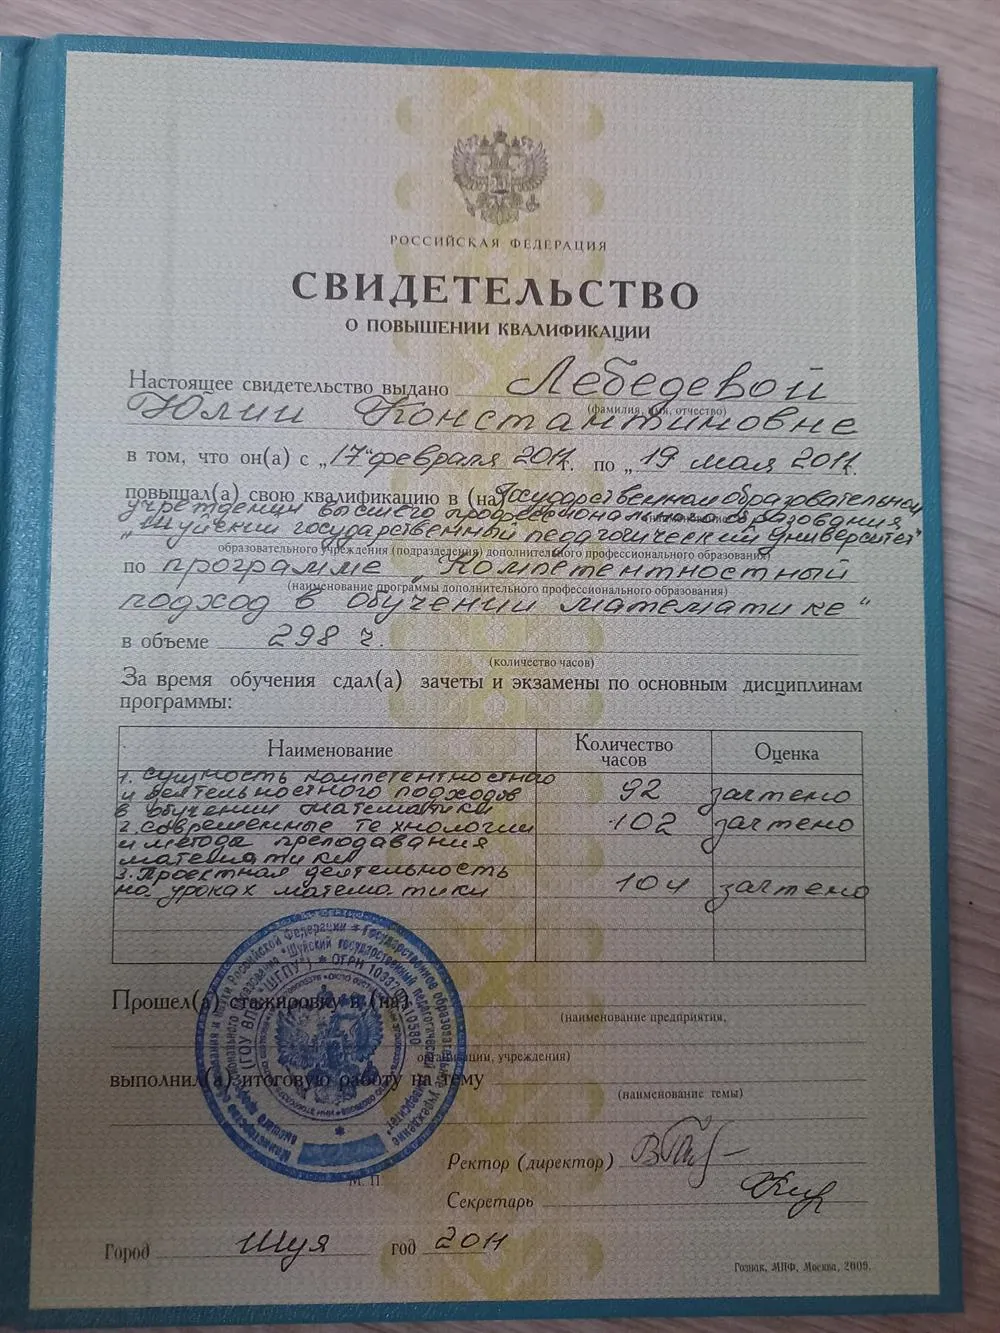 РОССИЙСКАЯ ФЕДЕРАЦИЯ
СВИДЕТЕЛЬСТВО
О ПОВЫШЕНИИ КВАЛИФИКАЦИИ
Настоящее свидетельство выдано Лебедевой
(фамилия, имя, отчество)
Юлии Константиновне
в том, что он(а) с „17“ февраля 2011г. по „19 мая 2011г.
повышал(а) свою квалификацию в (на) Государственном образовательном
учреждении высшего профессионального образования
„Шуйский государственный педагогический университет“
образовательного учреждения (подразделения) дополнительного профессионального образования)
по программе „Компетентностный
(наименование программы дополнительного профессионального образования)
подход в обучении математике“
в объеме 298 ч.
(количество часов)
За время обучения сдал(а) зачеты и экзамены по основным дисциплинам
программы:
Наименование Количество часов Оценка
1. Сущность компетентностного
и деятельностного подходов 92 зачтено
в обучении математики
2. Современные технологии 102 зачтено
и метода преподавания
математики
3. Проектная деятельность
на уроках математики 104 зачтено
Прошел(а) стажировку в (на)
(наименование предприятия,
организации, учреждения)
выполнил(а) итоговую работу на тему
(наименование темы)
Ректор (директор)
М. П.
Секретарь
Город Шуя год 2011
Гознак, МПФ, Москва, 2009.